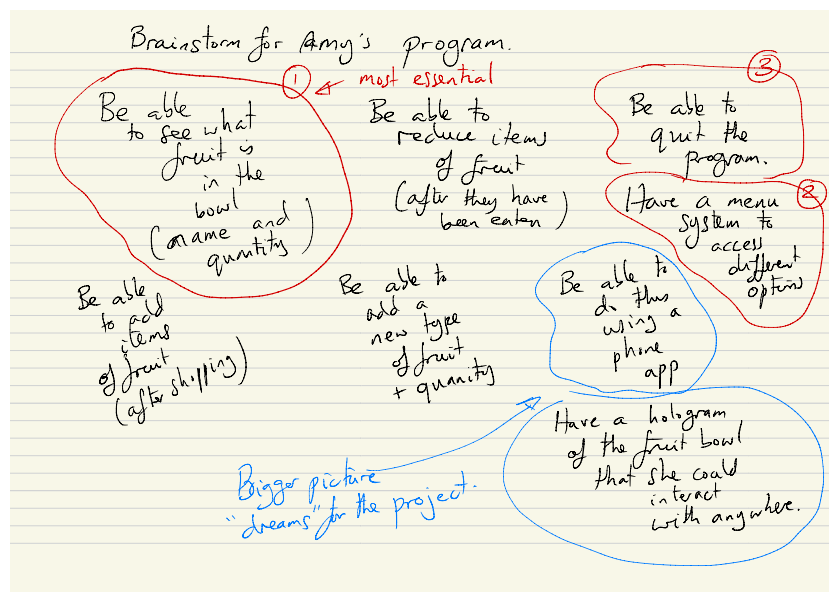 Brainstorm for Amy's program.
1
most essential
Be able
to see what
fruit is
in the
bowl
(name and
quantity)
Be able to
reduce items
of fruit
(after they have
been eaten)
3
Be able to
quit the
program.
2
Have a menu
system to
access
different
options
Be able
to add
items
of fruit
(after shopping)
Be able to
add a
new type
of fruit
+ quantity
Be able to
do this
using a
phone
app
Have a hologram
of the fruit bowl
that she could
interact
with anywhere.
Bigger picture
"dreams" for the project.